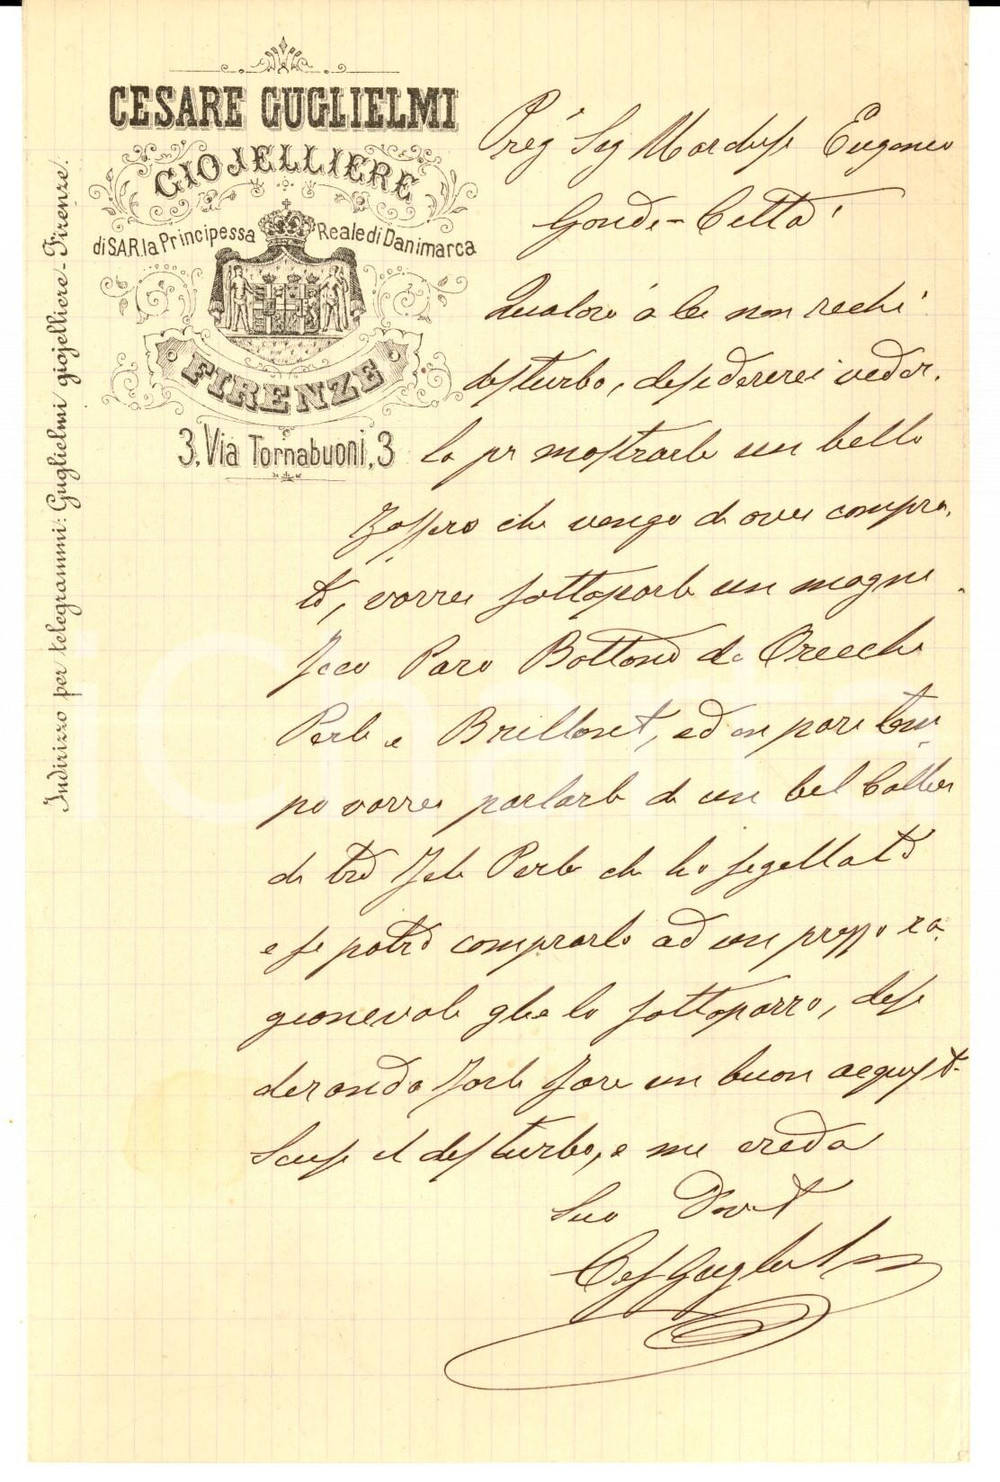 CESARE GUGLIELMI
GIOJELLIERE
di S.A.R. la Principessa Reale di Danimarca
FIRENZE
3, Via Tornabuoni, 3
Indirizzo per telegrammi: Guglielmi giojelliere - Firenze.
Preg Sig Marchese Eugenio
Gondi - Città
Qualora a lei non rechi
disturbo, desidererei veder.
la pr mostrarle un bello
Zaffiro che vengo di aver compra.
to, vorrei sottoporle un magni
fico Paro Bottoni da Orecchi
Perle e Brillanti, ed in pari tem
po vorrei parlarle di un bel Collier
di tre file Perle che ho
e se potrò comprarlo ad un prezzo ra
gionevole glie lo sottoporrò, desi
derando farle fare un buon acquisto.
Scusi il disturbo, e mi creda
Suo Devt
Ces Guglielmi